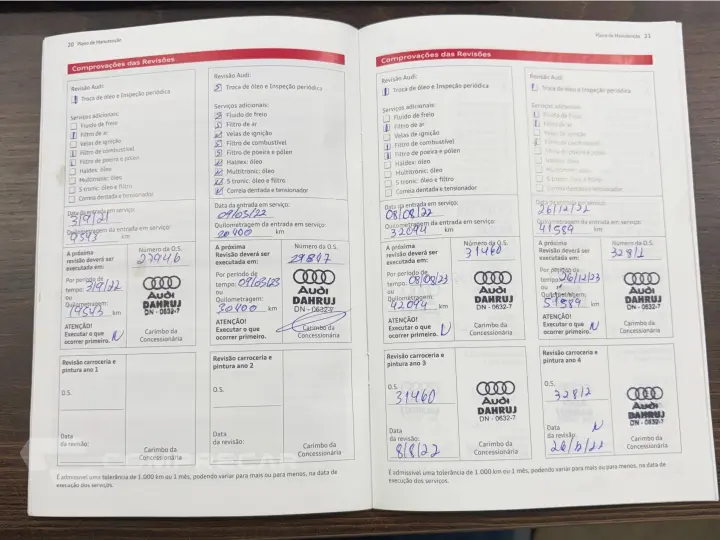 20 Plano de Manutenção
Comprovações das Revisões
Revisão Audi:
Troca de óleo e Inspeção periódica
Serviços adicionais:
Fluido de freio
Filtro de ar
Velas de ignição
Filtro de combustível
Filtro de poeira e pólen
Haldex: óleo
Multitronic: óleo
S tronic: óleo e filtro
Correia dentada e tensionador
Data da entrada em serviço:
3/9/21
Quilometragem da entrada em serviço:
9543 km
A próxima
revisão deverá ser
executada em:
Número da O.S.
27946
Por período de
tempo: 3/9/22
ou
Quilometragem:
19543 km
ATENÇÃO!
Executar o que
ocorrer primeiro.
Audi
DAHRUJ
DN - 0632-7
Carimbo da
Concessionária
Revisão carroceria e
pintura ano 1
O.S.
Data
da revisão:
Carimbo da
Concessionária
Revisão Audi:
Troca de óleo e Inspeção periódica
Serviços adicionais:
Fluido de freio
Filtro de ar
Velas de ignição
Filtro de combustível
Filtro de poeira e pólen
Haldex: óleo
Multitronic: óleo
S tronic: óleo e filtro
Correia dentada e tensionador
Data da entrada em serviço:
09/03/22
Quilometragem da entrada em serviço:
20400 km
A próxima
revisão deverá ser
executada em:
Número da O.S.
Por período de
tempo: 09/03/23
ou
Quilometragem:
30400 km
ATENÇÃO!
Executar o que
ocorrer primeiro.
Audi
DAHRUJ
DN - 0632-7
Carimbo da
Concessionária
Revisão carroceria e
pintura ano 2
O.S.
Data
da revisão:
Carimbo da
Concessionária
É admissível uma tolerância de 1.000 km ou 1 mês, podendo variar para mais ou para menos, na data de
execução dos serviços.
Plano de Manutenção 21
Comprovações das Revisões
Revisão Audi:
Troca de óleo e Inspeção periódica
Serviços adicionais:
Fluido de freio
Filtro de ar
Velas de ignição
Filtro de combustível
Filtro de poeira e pólen
Haldex: óleo
Multitronic: óleo
S tronic: óleo e filtro
Correia dentada e tensionador
Data da entrada em serviço:
08/08/22
Quilometragem da entrada em serviço:
32044 km
A próxima
revisão deverá ser
executada em:
Número da O.S.
31460
Por período de
tempo: 08/08/23
ou
Quilometragem:
42044 km
ATENÇÃO!
Executar o que
ocorrer primeiro.
Audi
DAHRUJ
DN - 0632-7
Carimbo da
Concessionária
Revisão carroceria e
pintura ano 3
O.S.
31460
Data
da revisão:
8/8/22
Audi
DAHRUJ
DN - 0632-7
Carimbo da
Concessionária
Revisão Audi:
Troca de óleo e Inspeção periódica
Serviços adicionais:
Fluido de freio
Filtro de ar
Velas de ignição
Filtro de combustível
Filtro de poeira e pólen
Haldex: óleo
Multitronic: óleo
S tronic: óleo e filtro
Correia dentada e tensionador
Data da entrada em serviço:
26/12/22
Quilometragem da entrada em serviço:
41589 km
A próxima
revisão deverá ser
executada em:
Número da O.S.
Por período de
tempo: 26/12/23
ou
Quilometragem:
51589 km
ATENÇÃO!
Executar o que
ocorrer primeiro.
Audi
DAHRUJ
DN - 0632-7
Carimbo da
Concessionária
Revisão carroceria e
pintura ano 4
O.S.
Data
da revisão:
Audi
DAHRUJ
DN - 0632-7
Carimbo da
Concessionária
É admissível uma tolerância de 1.000 km ou 1 mês, podendo variar para mais ou para menos, na data de
execução dos serviços.